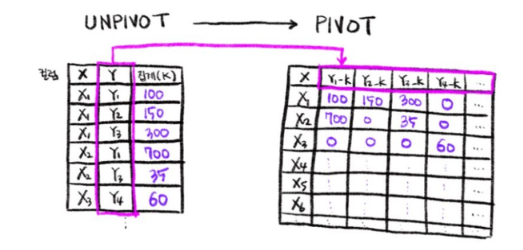 UNPIVOT → PIVOT
X Y 집계(K)
X₁ Y₁ 100
X₁ Y₂ 150
X₁ Y₃ 300
X₂ Y₁ 700
X₂ Y₃ 35
X₃ Y₄ 60
X Y₁-K Y₂-K Y₃-K Y₄-K ...
X₁ 100 150 300 0 ...
X₂ 700 0 35 0 ...
X₃ 0 0 0 60 ...
X₄ ...
X₅ ...
X₆ ...